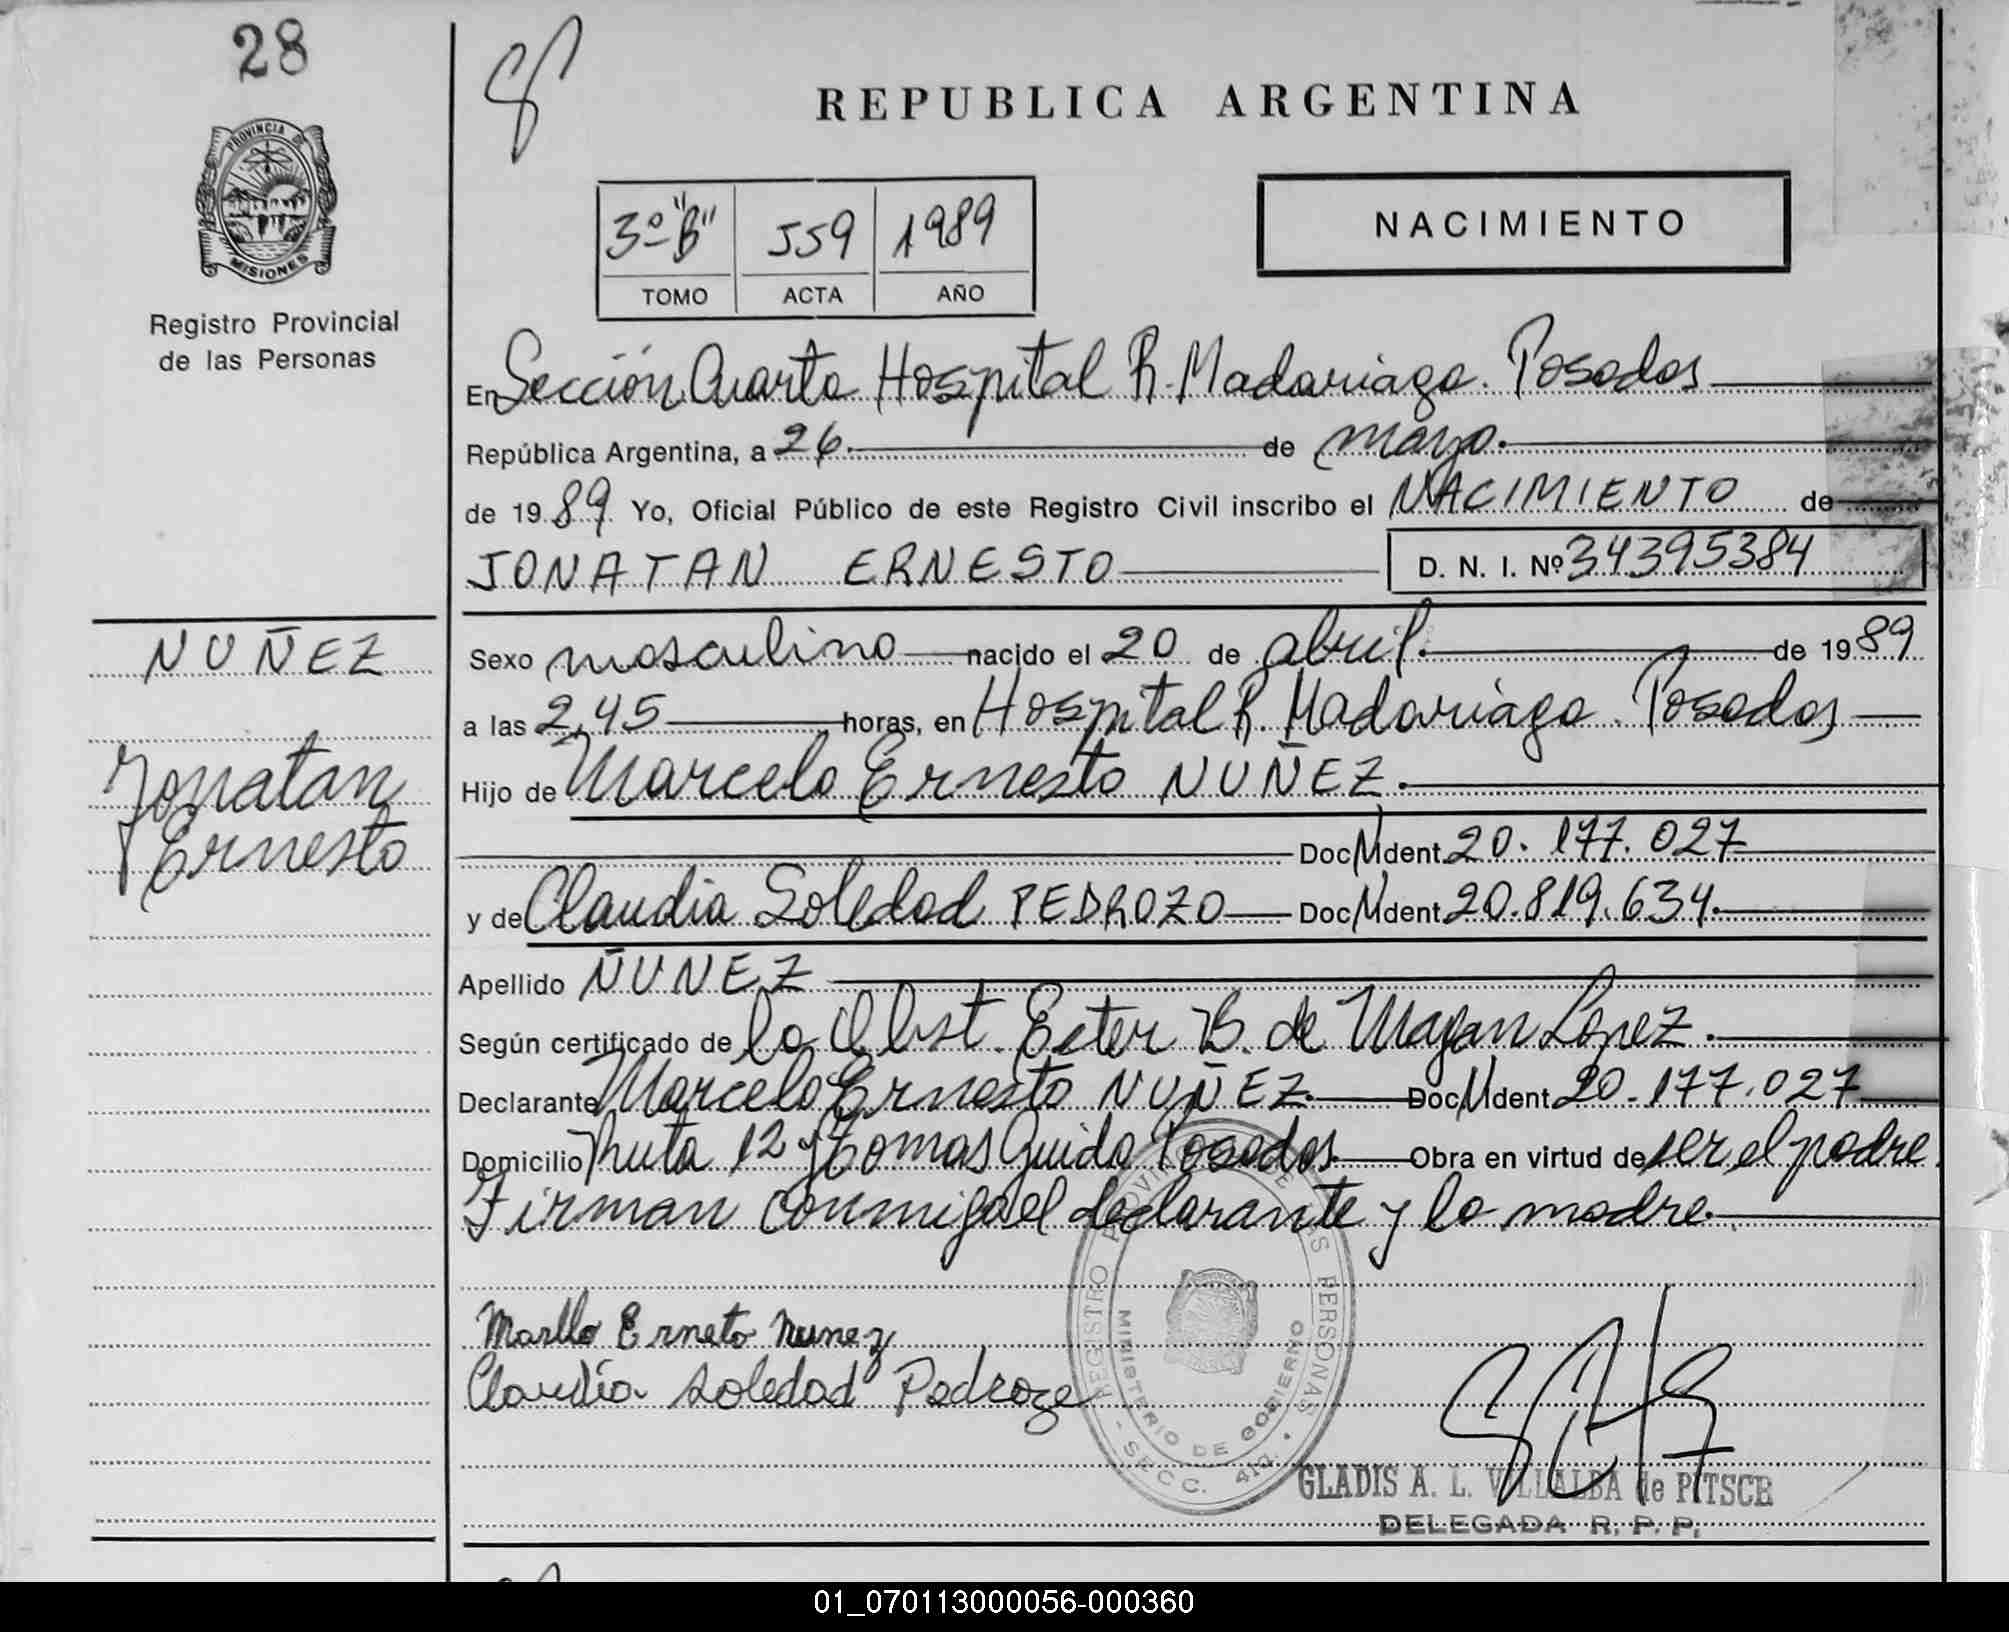 28
REPUBLICA ARGENTINA
PROVINCIA DE
MISIONES
Registro Provincial
de las Personas
3º "B" 559 1989
TOMO ACTA AÑO
NACIMIENTO
En Sección Cuarta Hospital R. Madariaga. Posadas
República Argentina, a 26 de mayo.
de 1989 Yo, Oficial Público de este Registro Civil inscribo el NACIMIENTO de
JONATAN ERNESTO D. N. I. Nº 34395384
NUÑEZ
Jonatan
Ernesto
Sexo masculino nacido el 20 de abril. de 1989
a las 2,45 horas, en Hospital R. Madariaga. Posadas
Hijo de Marcelo Ernesto NUÑEZ.
Doc. Ident. 20.177.027
y de Claudia Soledad PEDROZO Doc. Ident. 20.819.634.
Apellido ÑUNEZ
Según certificado de la Obst. Ester B. de Lopez.
Declarante Marcelo Ernesto NUÑEZ. Doc. Ident. 20.177.027
Domicilio Ruta 12 y Tomas Guido Posadas. Obra en virtud de ser el padre.
Firman conmigo el declarante y la madre.
Marllo Erneto Nunez
Claudia Soledad Pedroze
REGISTRO PROVINCIAL DE LAS PERSONAS
MINISTERIO DE GOBIERNO
- SECC. 4ta. -
GLADIS A. L. VILLALBA de PITSCH
DELEGADA R. P. P.
01_070113000056-000360